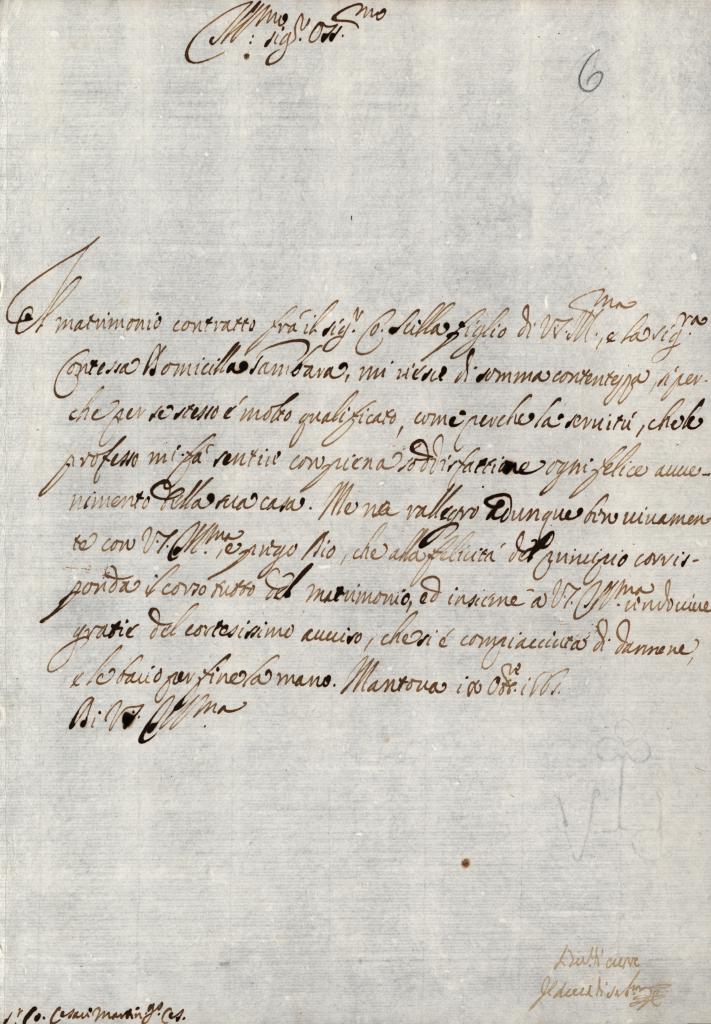 Ill.mo sig.r Oss.mo
6
Il matrimonio contratto frà il sig.r Co. Scilla figlio di V.S. Ill.ma, e la sig.ra
Contessa Domicilla Gambara, mi riesce di somma contentezza, sì per-
che per se stesso è molto qualificato, come perche la servitù, che le
professo mi fà sentire con piena soddisfattione ogni felice avve-
nimento della sua casa. Me ne rallegro adunque ben vivamen-
te con V.S. Ill.ma, e prego Dio, che alla felicità del principio corris-
ponda il corso tutto del matrimonio, ed insieme à V.S. Ill.ma rendo vive
gratie del cortesissimo avviso, che si è compiacciuta di darmene,
e le bacio per fine la mano. Mantova Ott.re
Di V.S. Ill.ma
S.r Co. Cesare Martin.go Ces.